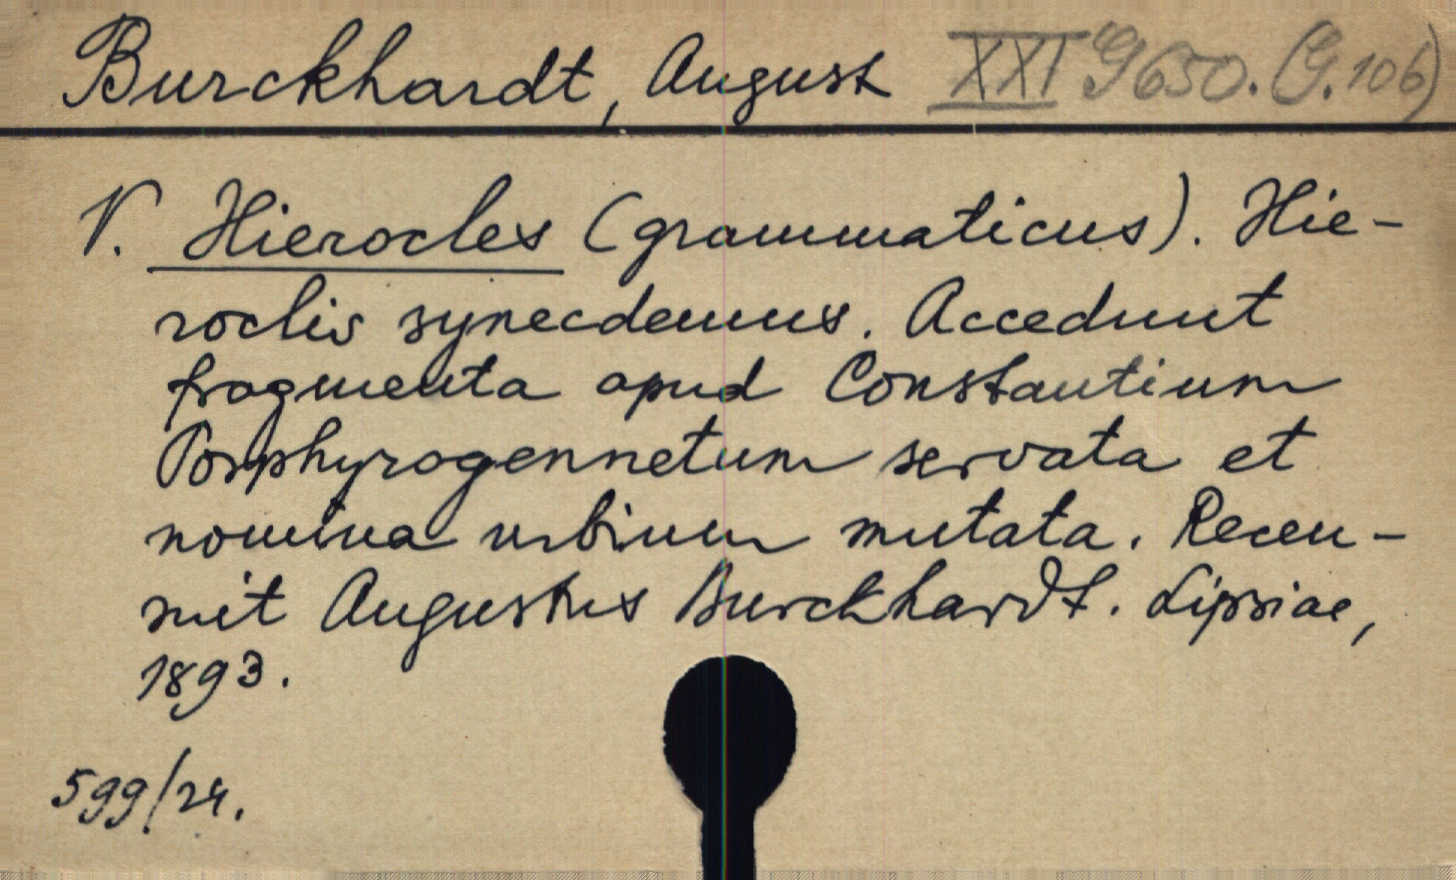 Burckhardt, August XXI G 650. (G. 106)
V. Hierocles (grammaticus). Hie-
roclis synecdemus. Accedunt
fragmenta apud Constantium
Porphyrogennetum servata et
nomina urbium mutata. Recen-
suit Augustus Burckhardt. Lipsiae,
1893.
599/24.